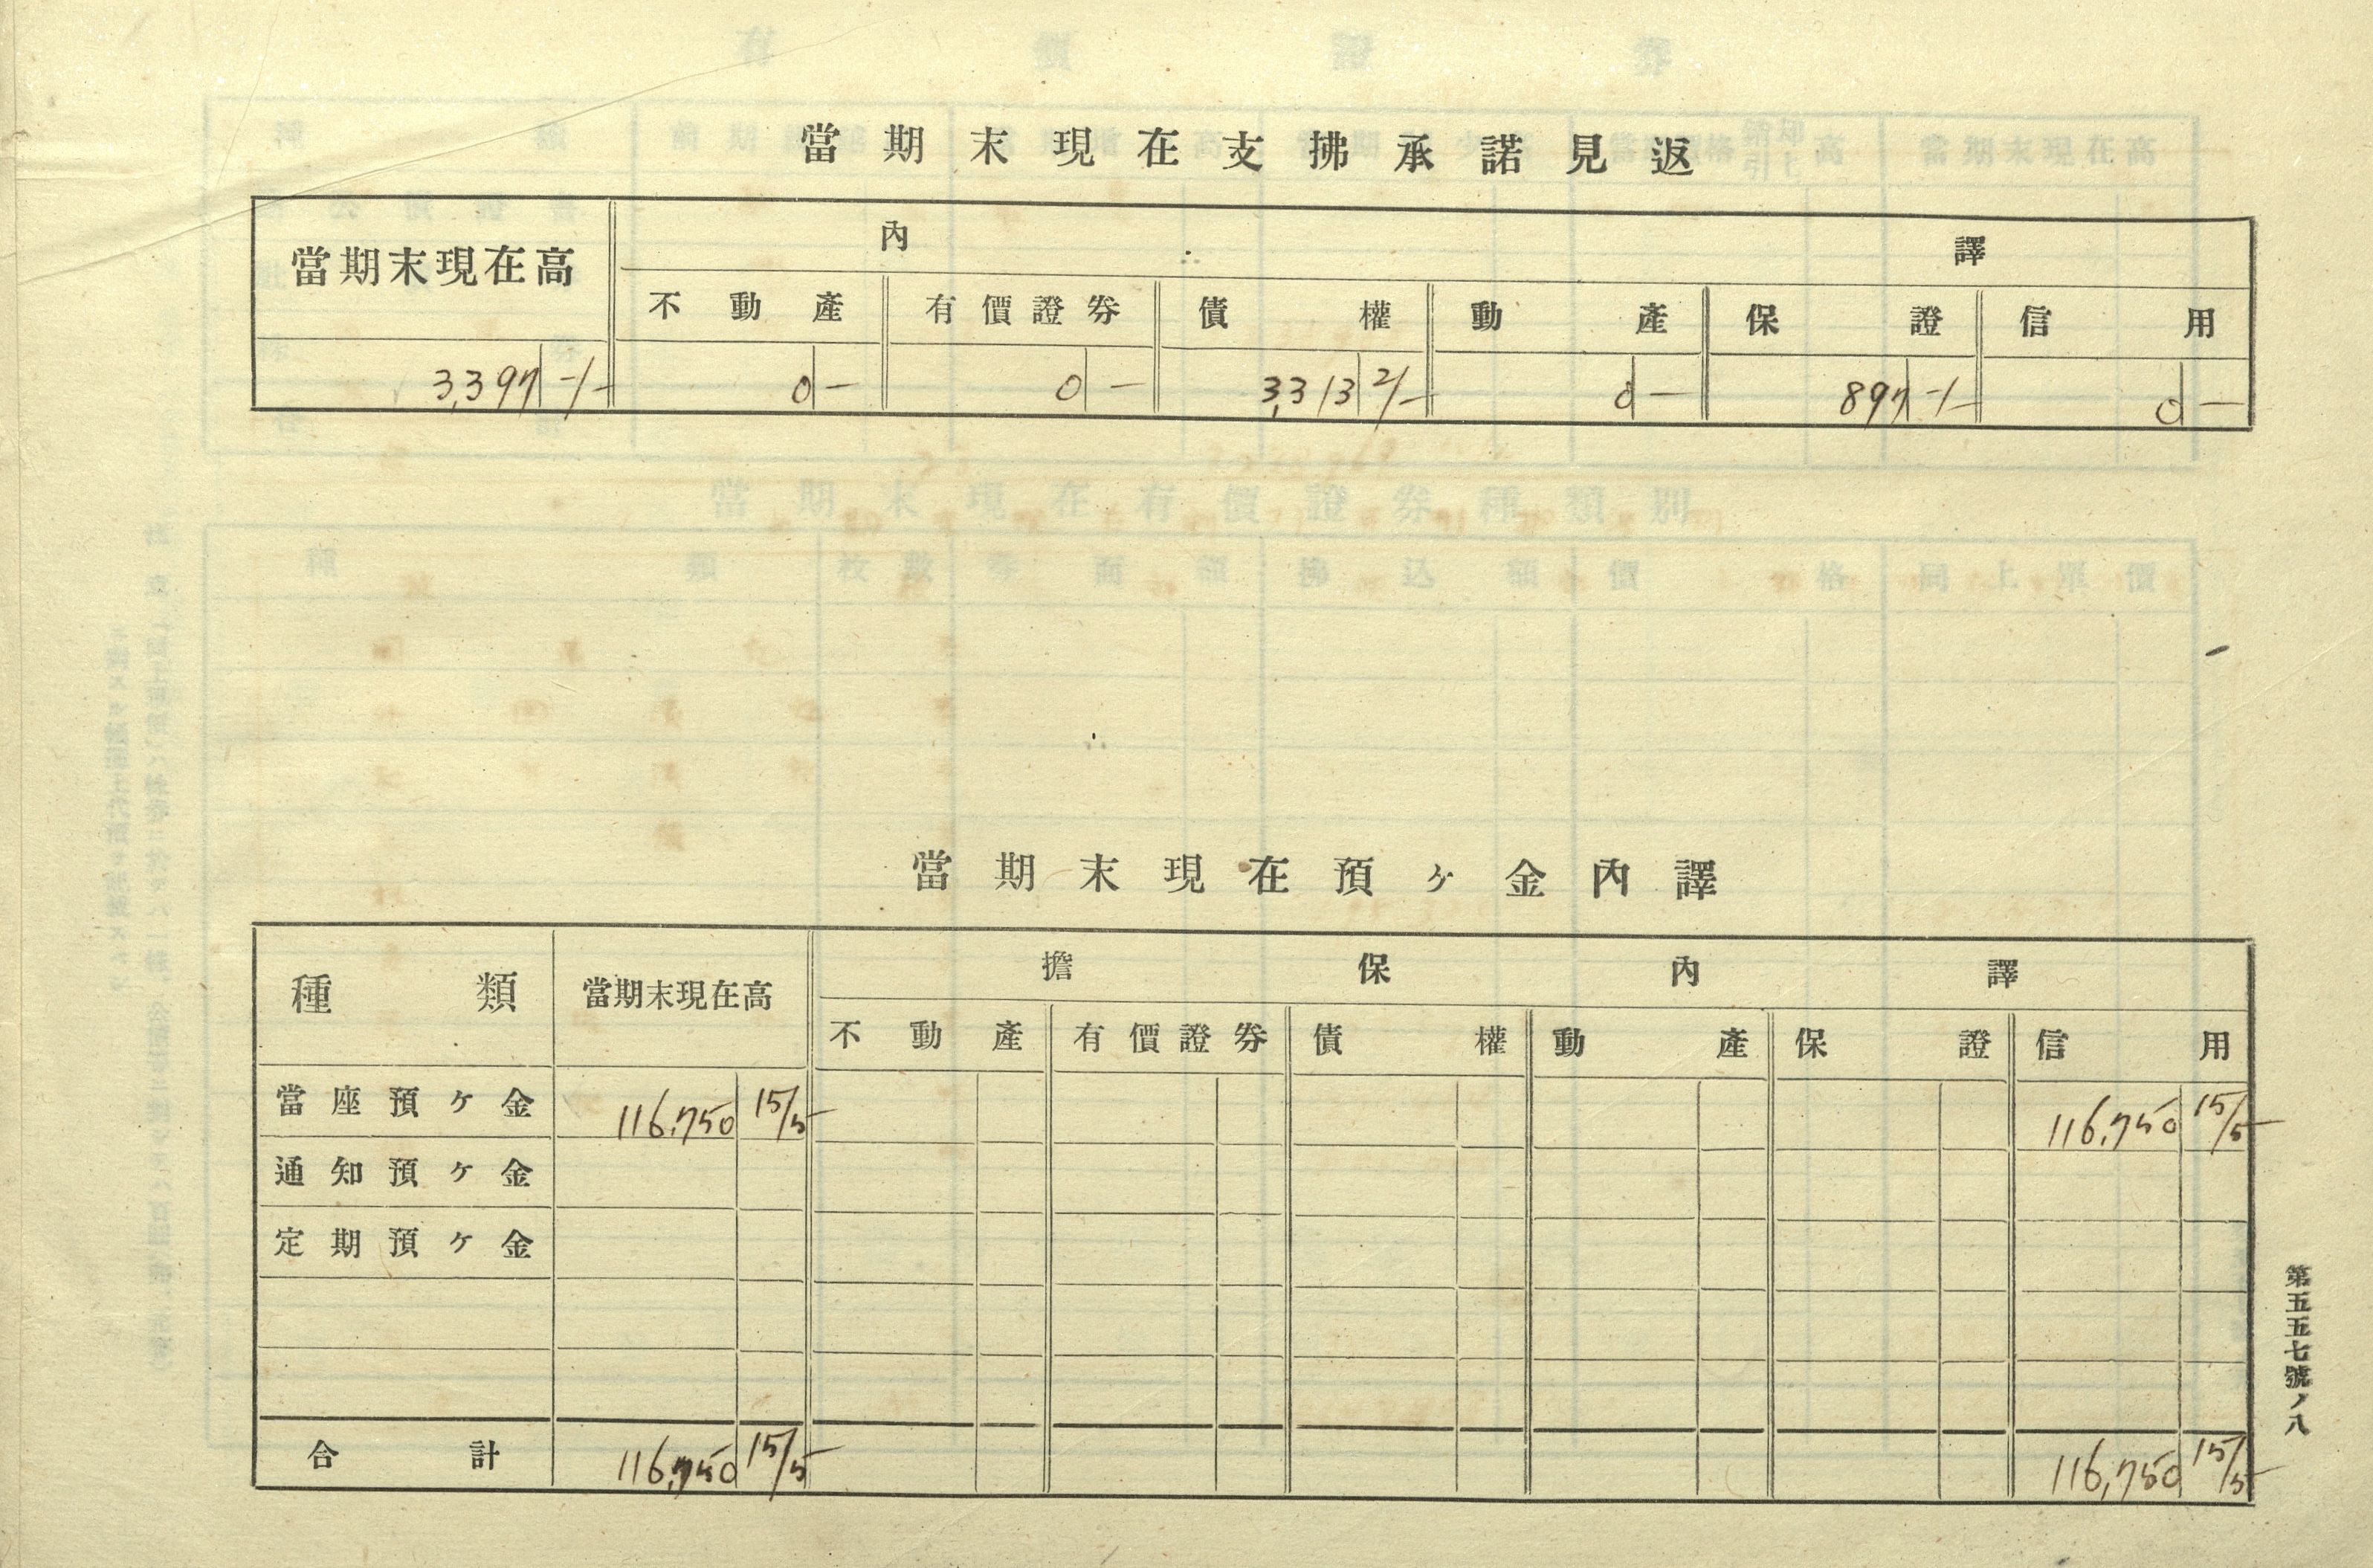 當期末現在支拂承諾見返
當期末現在高 內譯
不動產 有價證券 債權 動產 保證 信用
3,397 -/- 0 - 0 - 3,313 2/- 0 - 897 -/- 0 -
當期末現在預ヶ金內譯
種類 當期末現在高 擔保內譯
不動產 有價證券 債權 動產 保證 信用
當座預ヶ金 116,750 15/5- 116,750 15/5-
通知預ヶ金
定期預ヶ金
合計 116,750 15/5- 116,750 15/5-
第五五七號ノ八